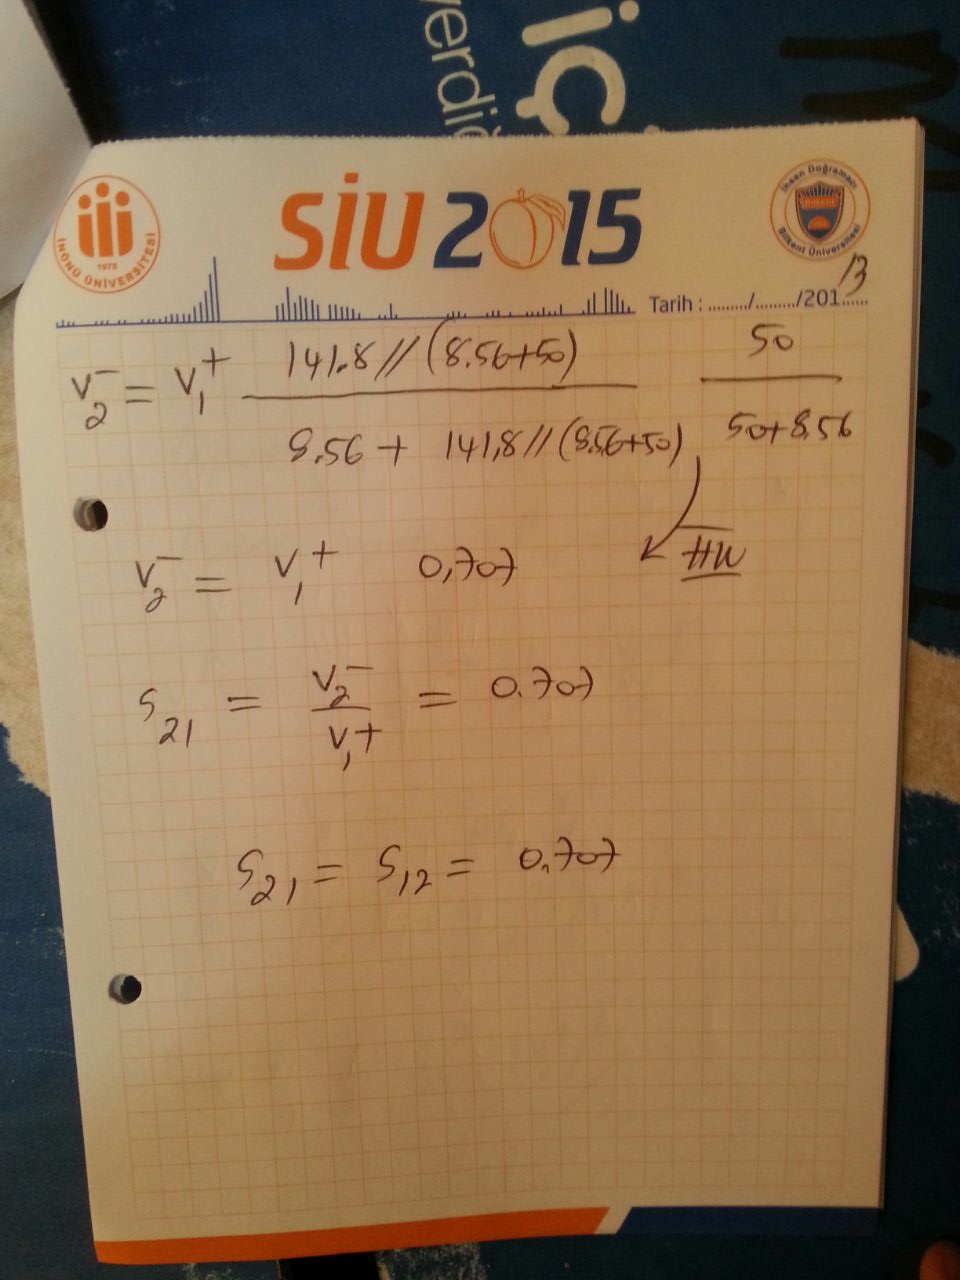 verdiğ
iç
İNÖNÜ ÜNİVERSİTESİ
1975
SİU 2015
İhsan Doğramacı
Bilkent Üniversitesi
Tarih : ........./........./201......
13
V₂⁻ = V₁⁺ 141.8 // (8.56+50) / 8.56 + 141,8 // (8.56+50) 50 / 50+8.56
HW
V₂⁻ = V₁⁺ 0,707
S₂₁ = V₂⁻ / V₁⁺ = 0.707
S₂₁ = S₁₂ = 0,707